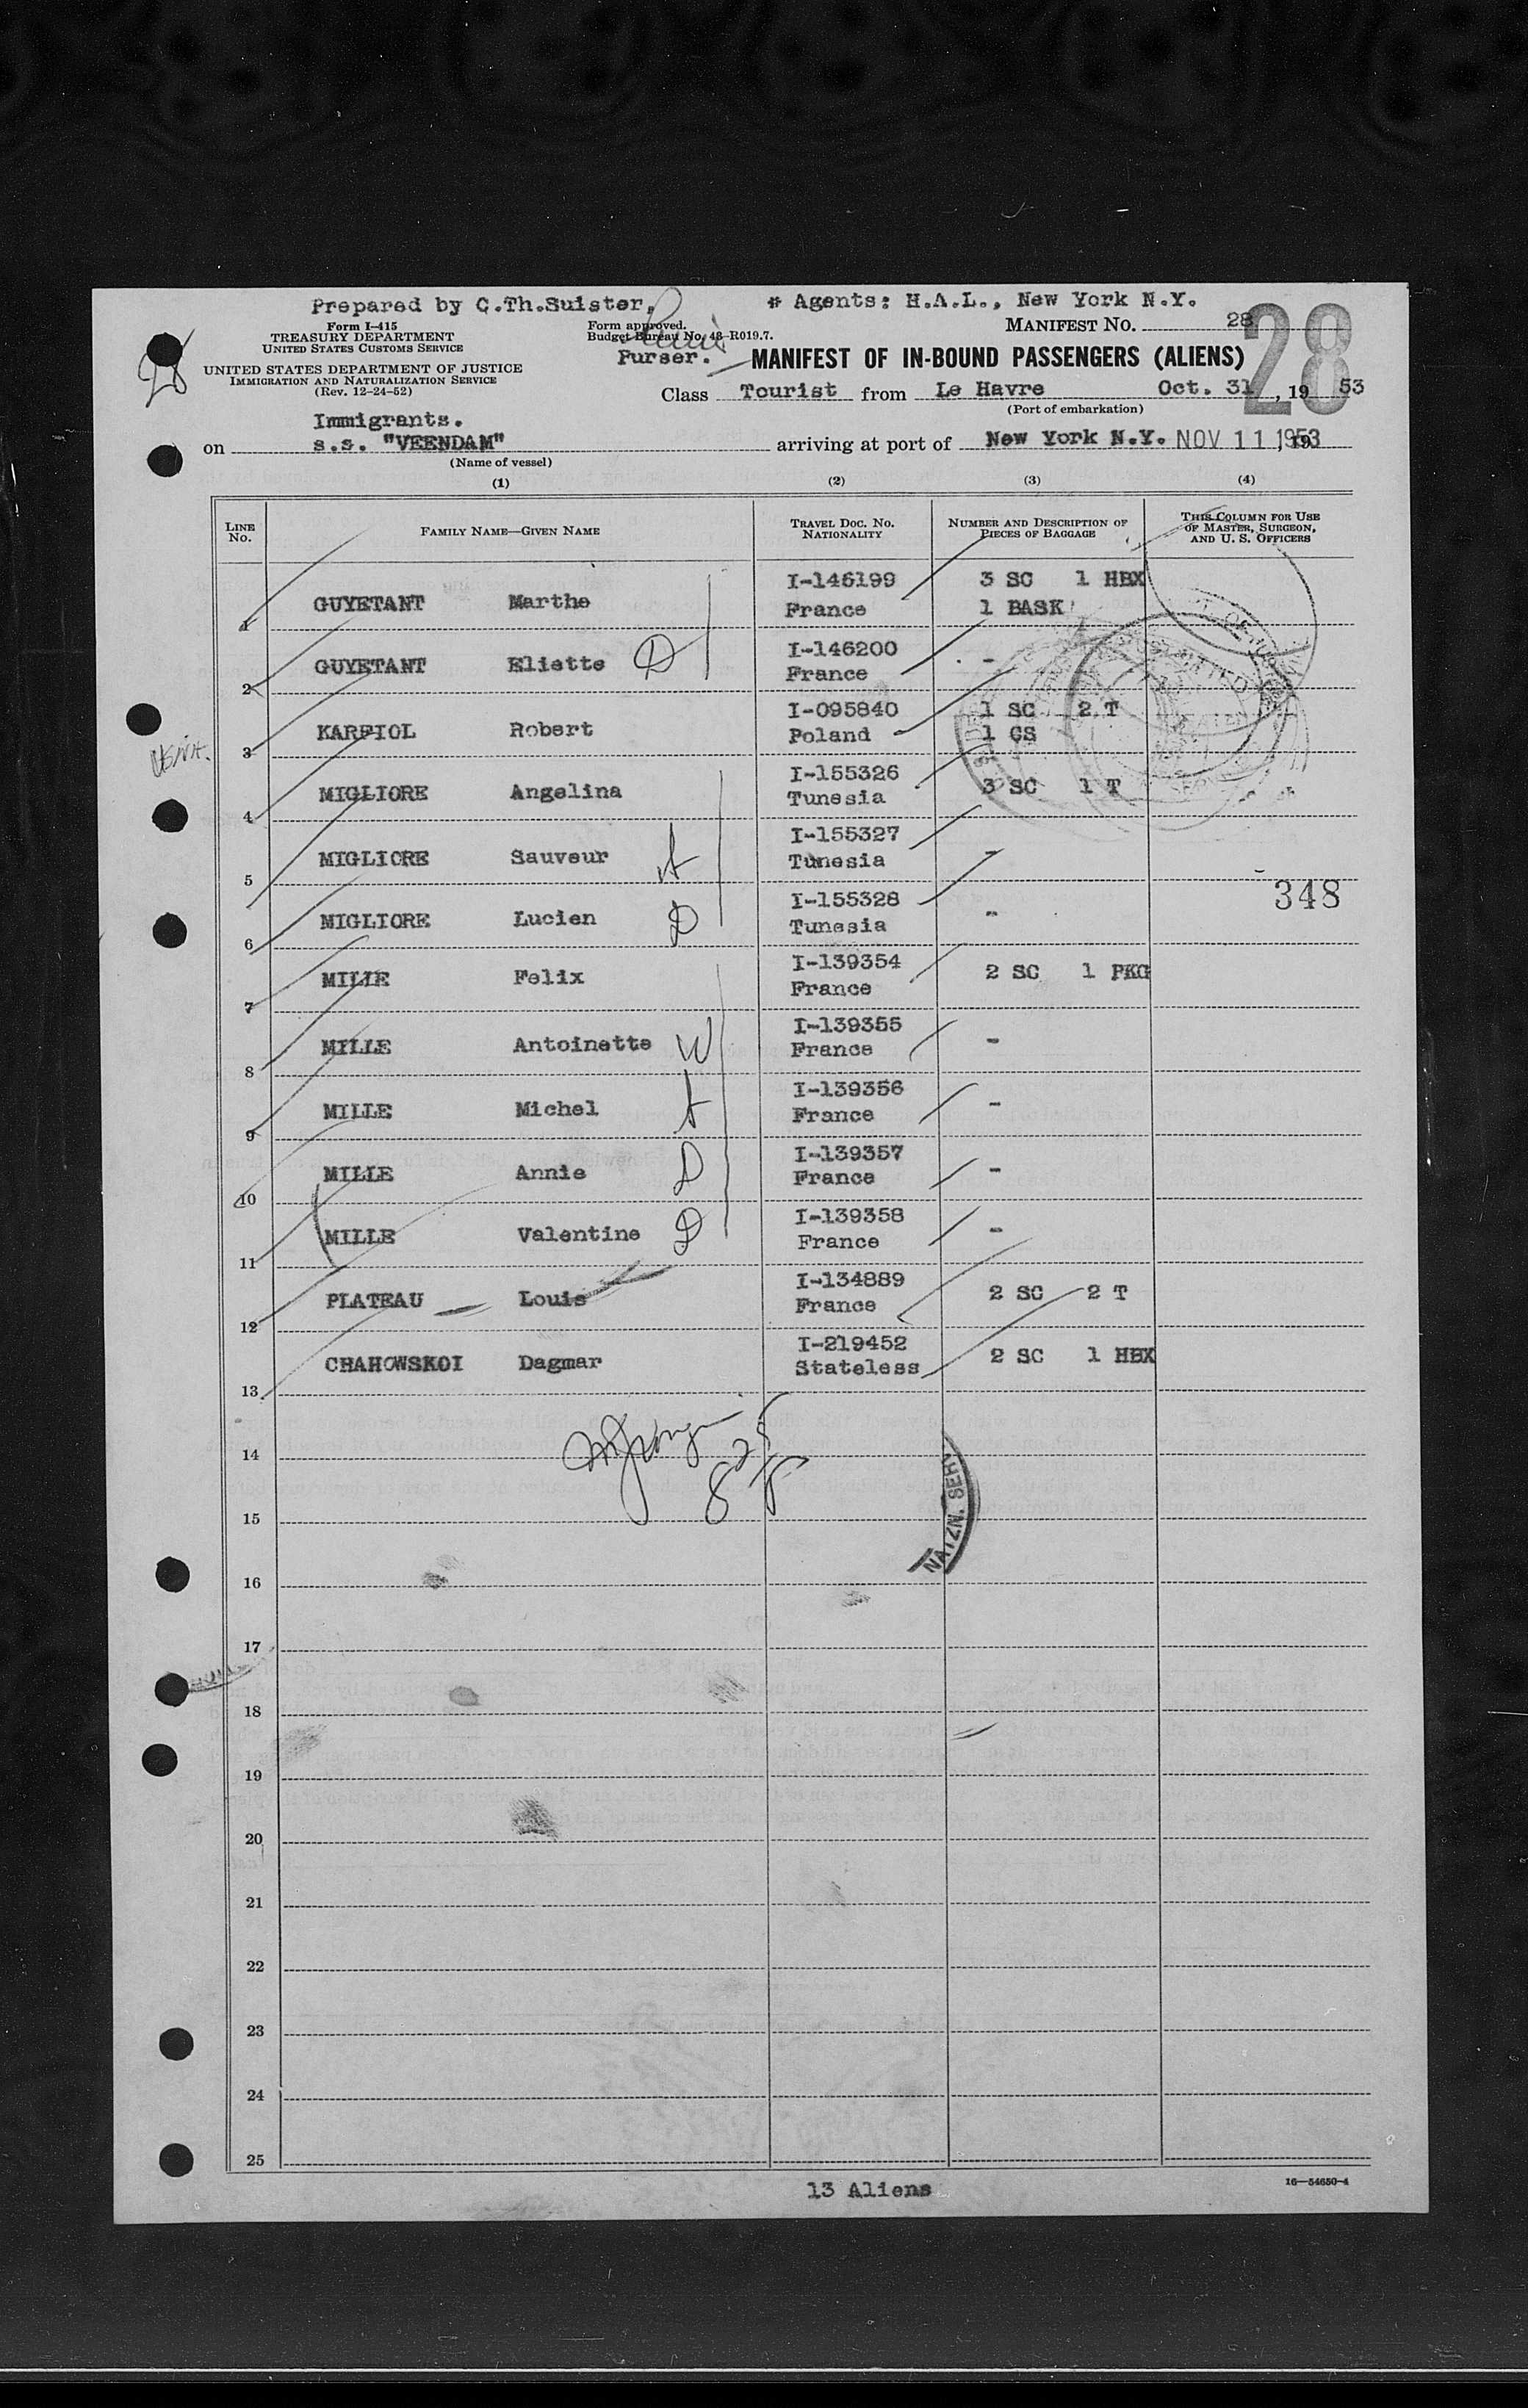 Prepared by C.Th.Suister, # Agents: H.A.L., New York N.Y.
Form I-415 Form approved. MANIFEST NO. 28
TREASURY DEPARTMENT Budget Bureau No. 43-R019.7.
UNITED STATES CUSTOMS SERVICE Purser. MANIFEST OF IN-BOUND PASSENGERS (ALIENS)
28
28
UNITED STATES DEPARTMENT OF JUSTICE
IMMIGRATION AND NATURALIZATION SERVICE
(Rev. 12-24-52) Class Tourist from Le Havre Oct. 31, 1953
(Port of embarkation)
Immigrants.
on s.s. "VEENDAM" arriving at port of New York N.Y. NOV 11 1953, 19
(Name of vessel)
(1) (2) (3) (4)
LINE NO. FAMILY NAME—GIVEN NAME TRAVEL DOC. NO. NATIONALITY NUMBER AND DESCRIPTION OF PIECES OF BAGGAGE THIS COLUMN FOR USE OF MASTER, SURGEON, AND U. S. OFFICERS
I-146199 3 SC 1 HBX
1 GUYETANT Marthe France 1 BASK
I-146200 -
2 GUYETANT Eliette D France
I-095840 1 SC 2 T
3 KARPIOL Robert Poland 1 CS
I-155326 3 SC 1 T
4 MIGLIORE Angelina Tunesia
I-155327 -
5 MIGLIORE Sauveur Tunesia
I-155328 -
348
6 MIGLIORE Lucien D Tunesia
I-139354 2 SC 1 PKG
7 MILLE Felix France
I-139355 -
8 MILLE Antoinette W France
I-139356 -
9 MILLE Michel France
I-139357 -
10 MILLE Annie D France
I-139358 -
11 MILLE Valentine D France
I-134889 2 SC 2 T
12 PLATEAU Louis France
I-219452 2 SC 1 HBX
13 CHAHOWSKOI Dagmar Stateless
14
825
NATZN. SERV
15
16
17
18
19
20
21
22
23
24
25
13 Aliens
16—54650-4